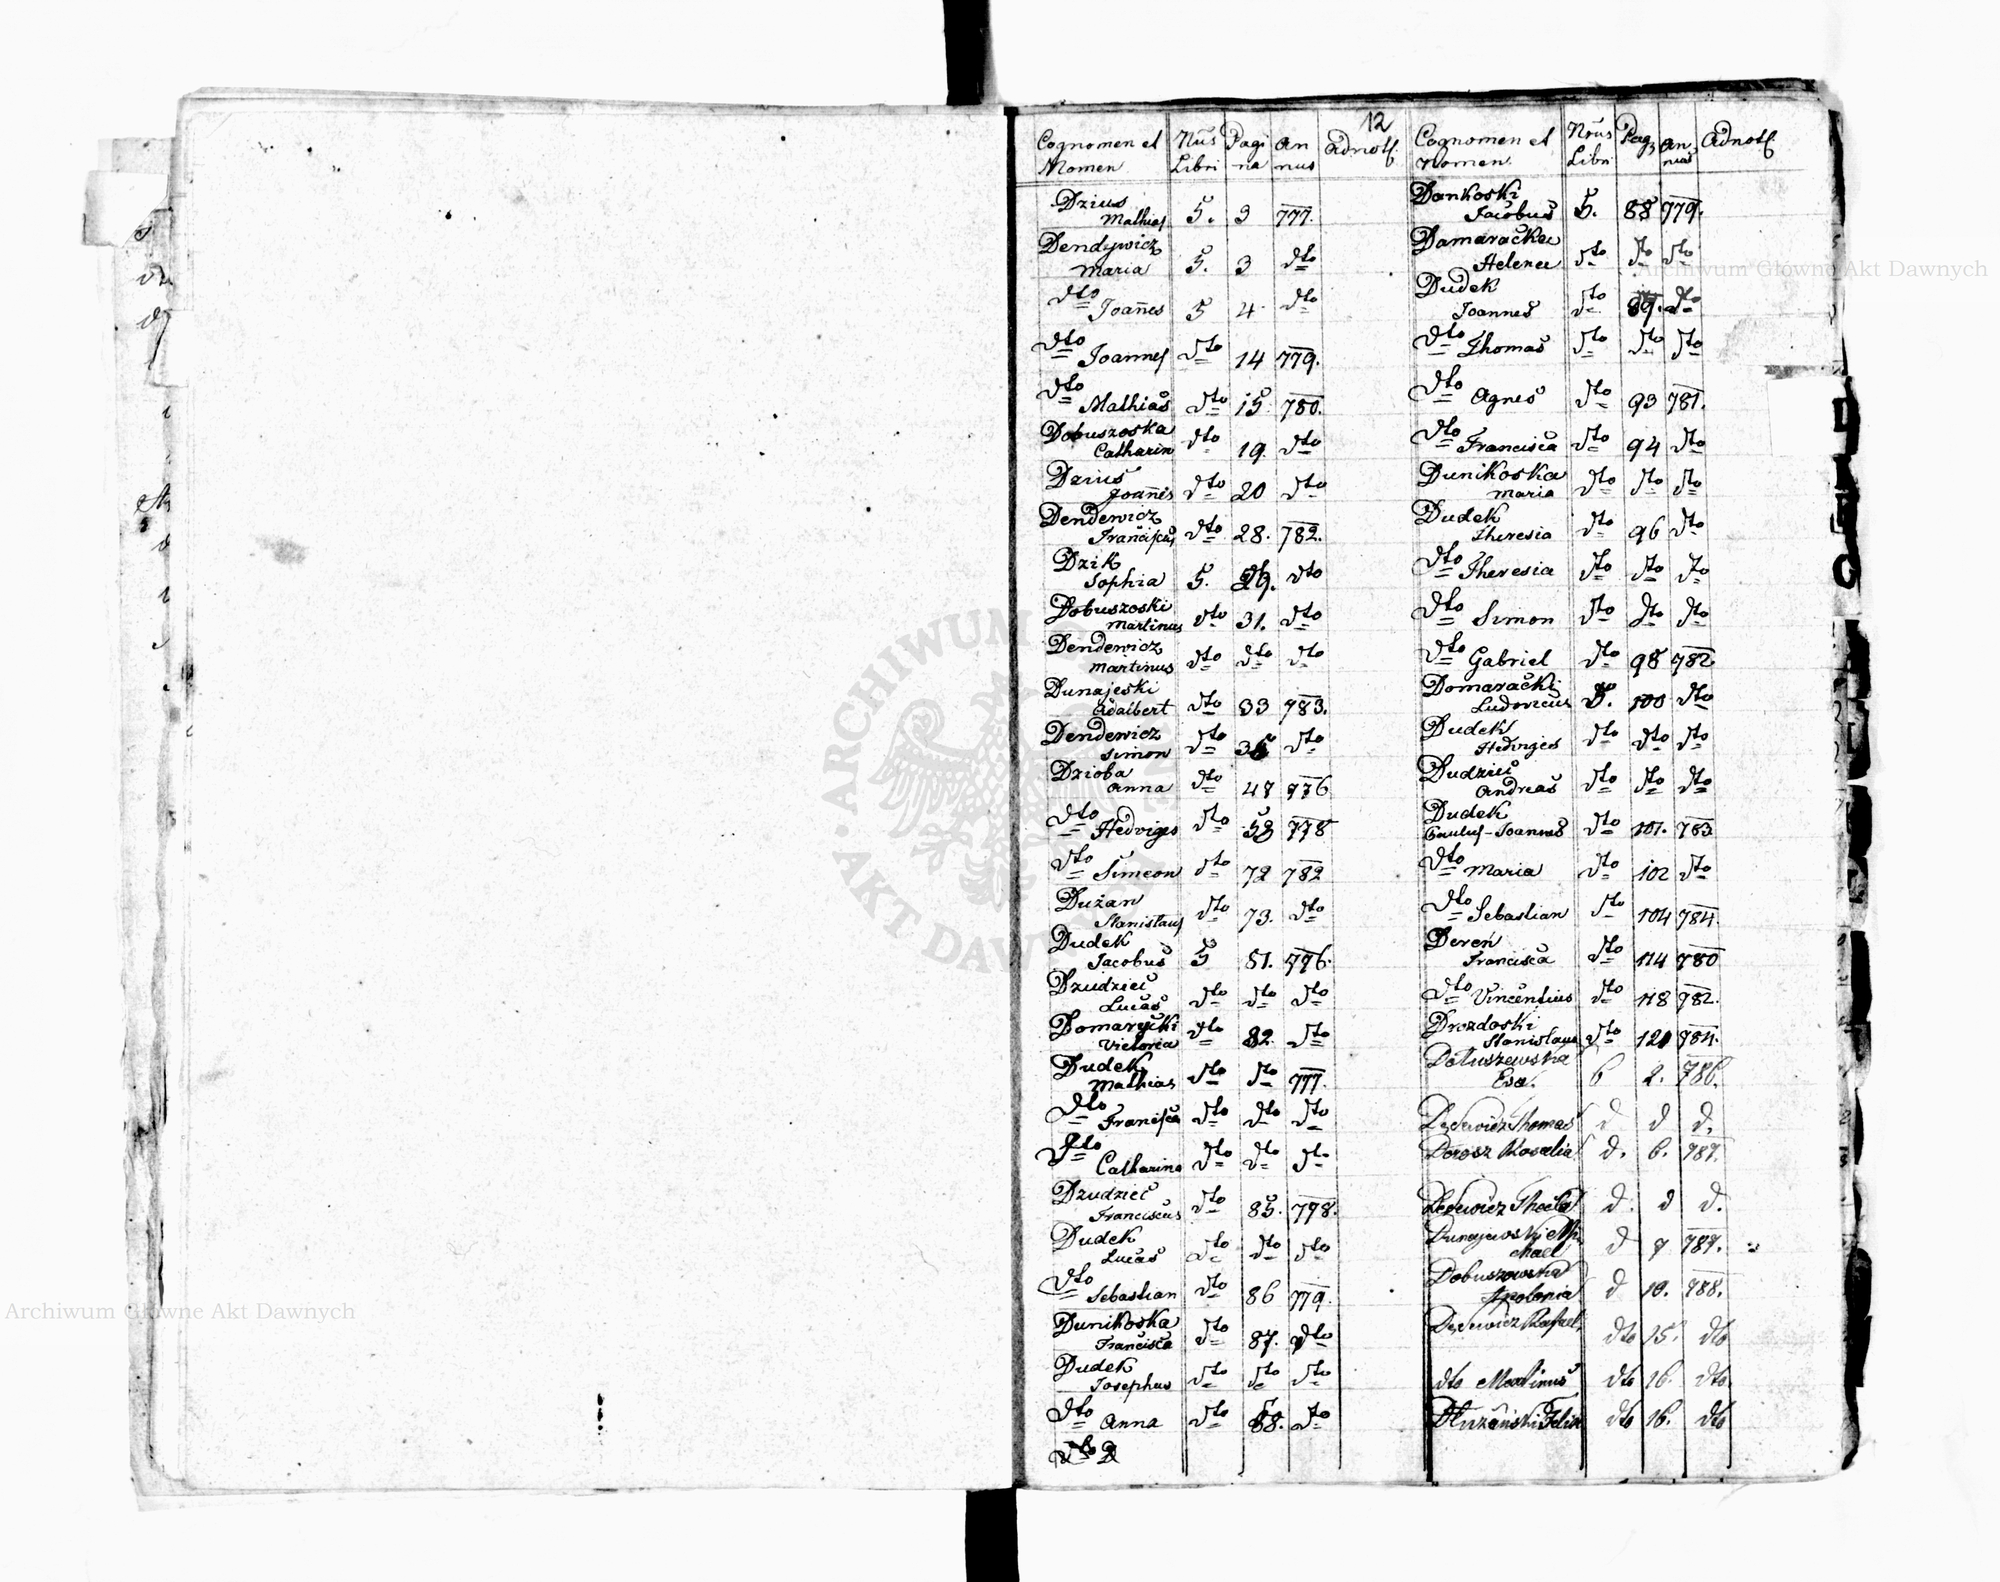 12
Cognomen et Nomen | Nus Libri | Pagina | Annus | Adnott.
Dzius Mathias 5. 3 777.
Dendywicz Maria 5. 3 dto
dto Joannes 5 4 dto
dto Joannes dto 14 779.
dto Mathias dto 15 780.
Dobuszoska Catharin dto 19. dto
Dzius Joannes dto 20 dto
Dendewicz Franciscus dto 28. 782.
Dzik Sophia 5. 29. dto
Dobuszoski Martinus dto 31. dto
Dendewicz Martinus dto dto dto
Dunajeski Adalbert dto 33 783.
Dendewicz Simon dto dto
Dzioba Anna dto 47 776
dto Hedviges dto 778
dto Simeon dto 72 782
Dużan Stanislaus dto 73. dto
Dudek Jacobus 5 81. 776.
Dzudzieć Lucas dto dto dto
Domarycki Victoria dto 82. dto
Dudek Mathias dto dto 777.
dto Francisca dto dto dto
dto Catharina dto dto dto
Dzudzieć Franciscus dto 85. 778.
Dudek Lucas dto dto dto
dto Sebastian dto 86 779.
Dunikoska Francisca dto 87. dto
Dudek Josephus dto dto dto
dto Anna dto 88. dto
Cognomen et Nomen. | Nrus Libri | Pag. | Annus | Adnott.
Dankoski Jacobus 5. 88 779.
Damaracka Helena dto dto dto
Dudek Joannes dto 89. dto
dto Thomas dto dto dto
dto Agnes dto 93 781.
dto Francisca dto 94 dto
Dunikoska Maria dto dto dto
Dudek Theresia dto 96 dto
dto Theresia dto dto dto
dto Simon dto dto dto
dto Gabriel dto 98 782
Domaracki Ludovicus 5. 100 dto
Dudek Hedviges dto dto dto
Dudzieć Andreas dto dto dto
Dudek Paulus-Joannes dto 101. 783
dto Maria dto 102 dto
dto Sebastian dto 104 784.
Dereń Francisca dto 114 780
dto Vincentius dto 118 782.
Drozdoski Stanislaus dto 121 784.
Eva. 6 2. 786.
Dedewicz Thomas d d d.
Dorosz Rosalia d. 6. 787.
Dedewicz Thecla d. d d.
Dunajewski Michael d 7 787.
Dobuszowska Apolonia d 10. 788.
Dedewicz Rafael dto 15. dto
dto Martinus dto 16. dto
Dłużański Felix dto 16. dto
Archiwum Główne Akt Dawnych
Archiwum Główne Akt Dawnych
ARCHIWUM GŁÓWNE AKT DAWNYCH